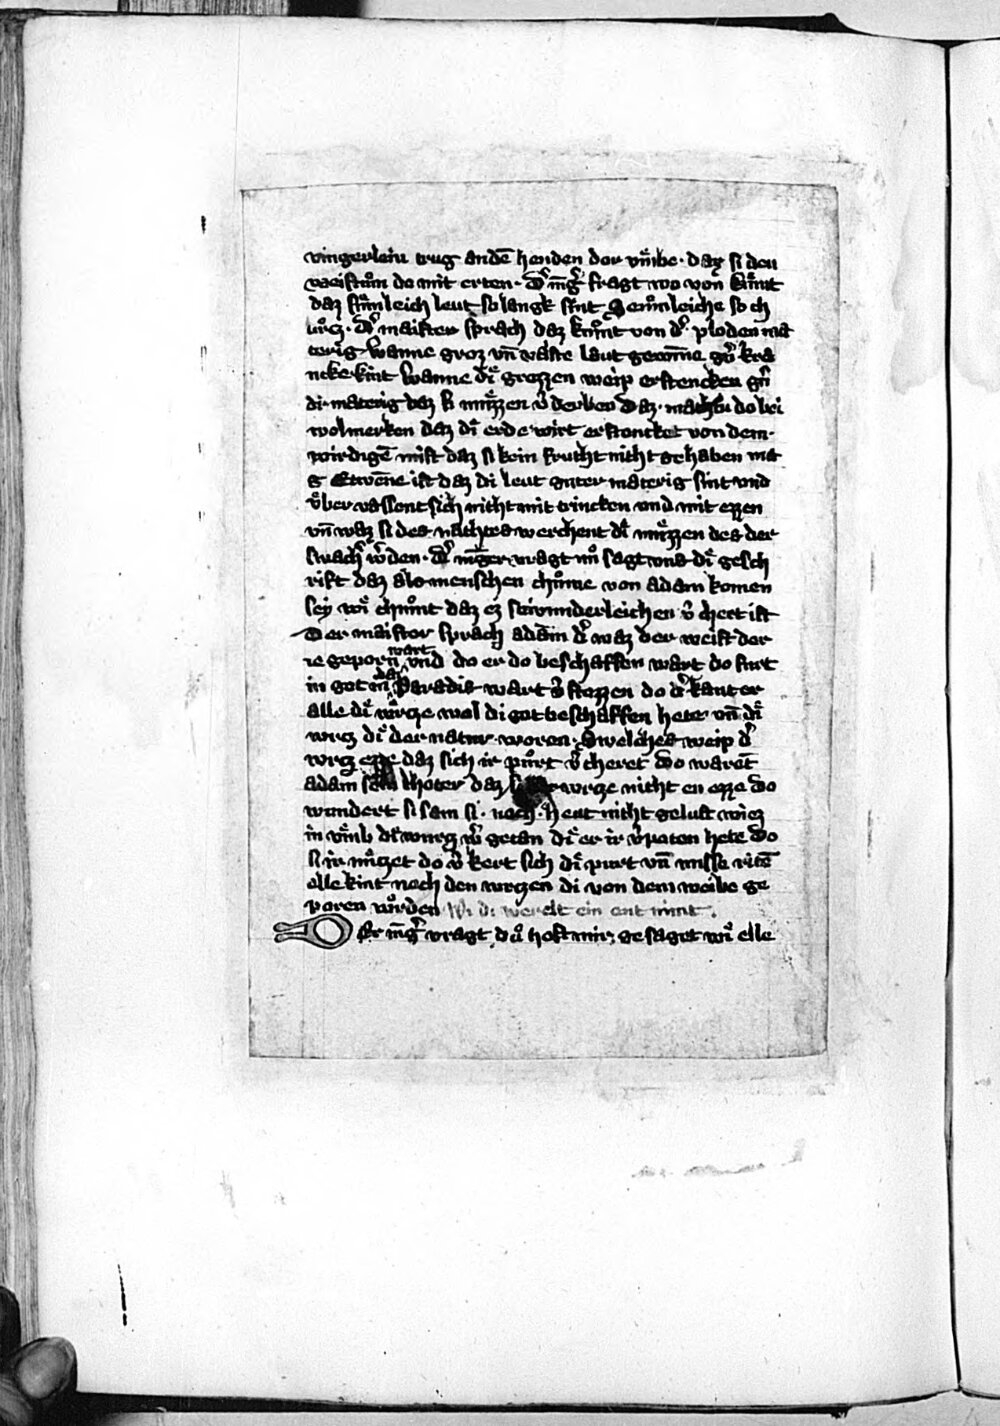 vingerlein trug anden̄ henden dor vm̄be · daz si den
weistům do mit erten · d̕ īūg̕ fragt wo von kůmt
daz sůmleich leut so langk sint Sevmleiche so ch
urcz · d̕ maister sprach daz kůmt von d̕ ploden ma
terig wanne groz vn̄ vaste laut
nke kint wanne di grozzen weip erstencken
di materig daz si můzzen v̕derben Daz · macht du do bei
wol merken daz di erde wirt erstoncket von dem ·
wirdigē mist daz si kein frucht nicht gehaben ma
g Etwēne ist daz di leut guter materig sint vnd
vber vassent sich nicht mit trincken vnd mit ezzen
vn̄ waz si des nachtes werchent di můzzen des der
swach̕ w̕den · d̕ iūger vragt nů sagt vns di gesch
rift daz als menschen chůnne von adam komen
sey wi chůmt daz ez so wunderleichen v̕chert ist
Der maister sprach adam d̕ waz der weist der
ie geporn wart vnd do er do beschaffen wart do furt
in got in daz Paradis wart v̕stozzen do d̕kant er
alle di wůrcze wol di got beschaffen hete vn̄ di
wrcz di der natur woren · Swelches weip d̕
wrcz ezze daz sich ir půrt v̕cheret Do warēt
adam sein thoter daz wrcze nicht en ezze Do
wundert si sam si · noch · heut nicht gelust wiez
in vmb di wurcz w̕ getan di er ir v̕poten hete Do
si ir nůczet do v̕kert sich di purt vn̄ misse vitē
elle kint noch den wrczen di von dem weibe ge
poren wůrden Wi di werelt ein ent nimt.
Er iūg̕ vragt dů host mir · gesaget wi elle